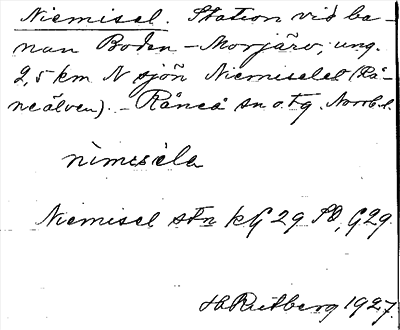 Niemisel. Station vid ba-
nan Boden - Morjärv, ung.
2,5 km N sjön Niemiselet (Rå-
neälven). - Råneå sn o. tg. Norrb. l.
nìmisèla
Niemisel stn kG 29 SO, G29.
H Reitberg 1927.